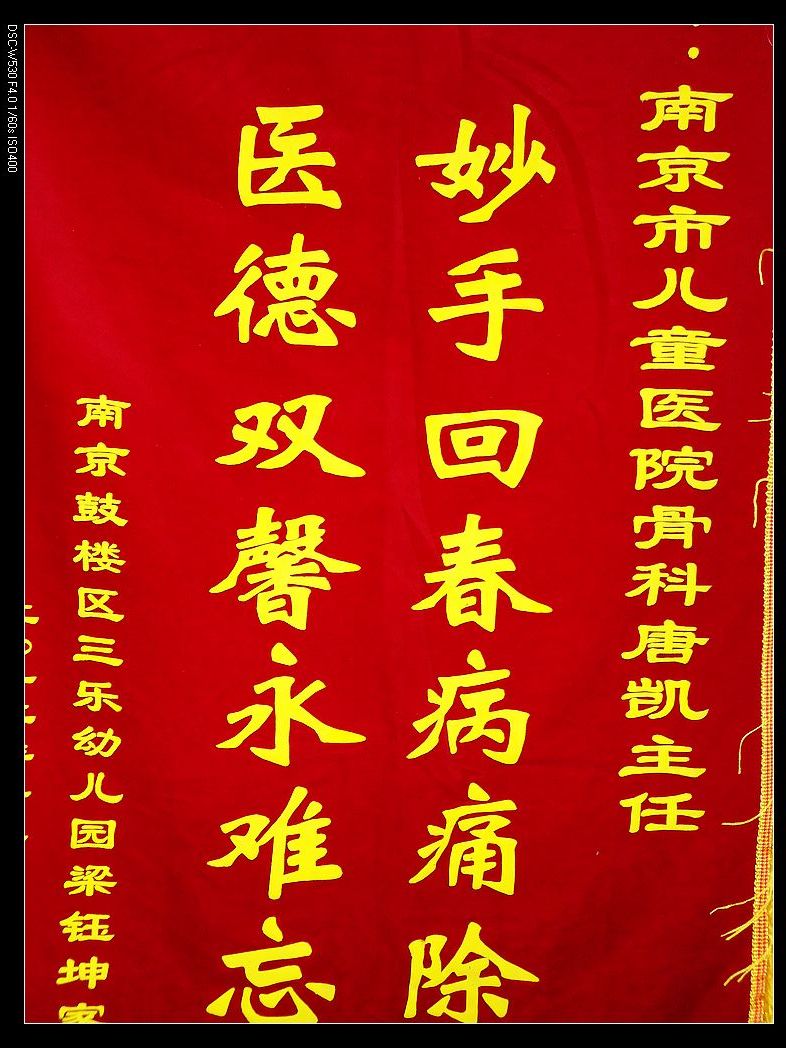 南京市儿童医院骨科唐凯主任
妙手回春病痛除
医德双馨永难忘
南京鼓楼区三乐幼儿园梁钰坤家
DSC-W530 F4.0 1/60s ISO400